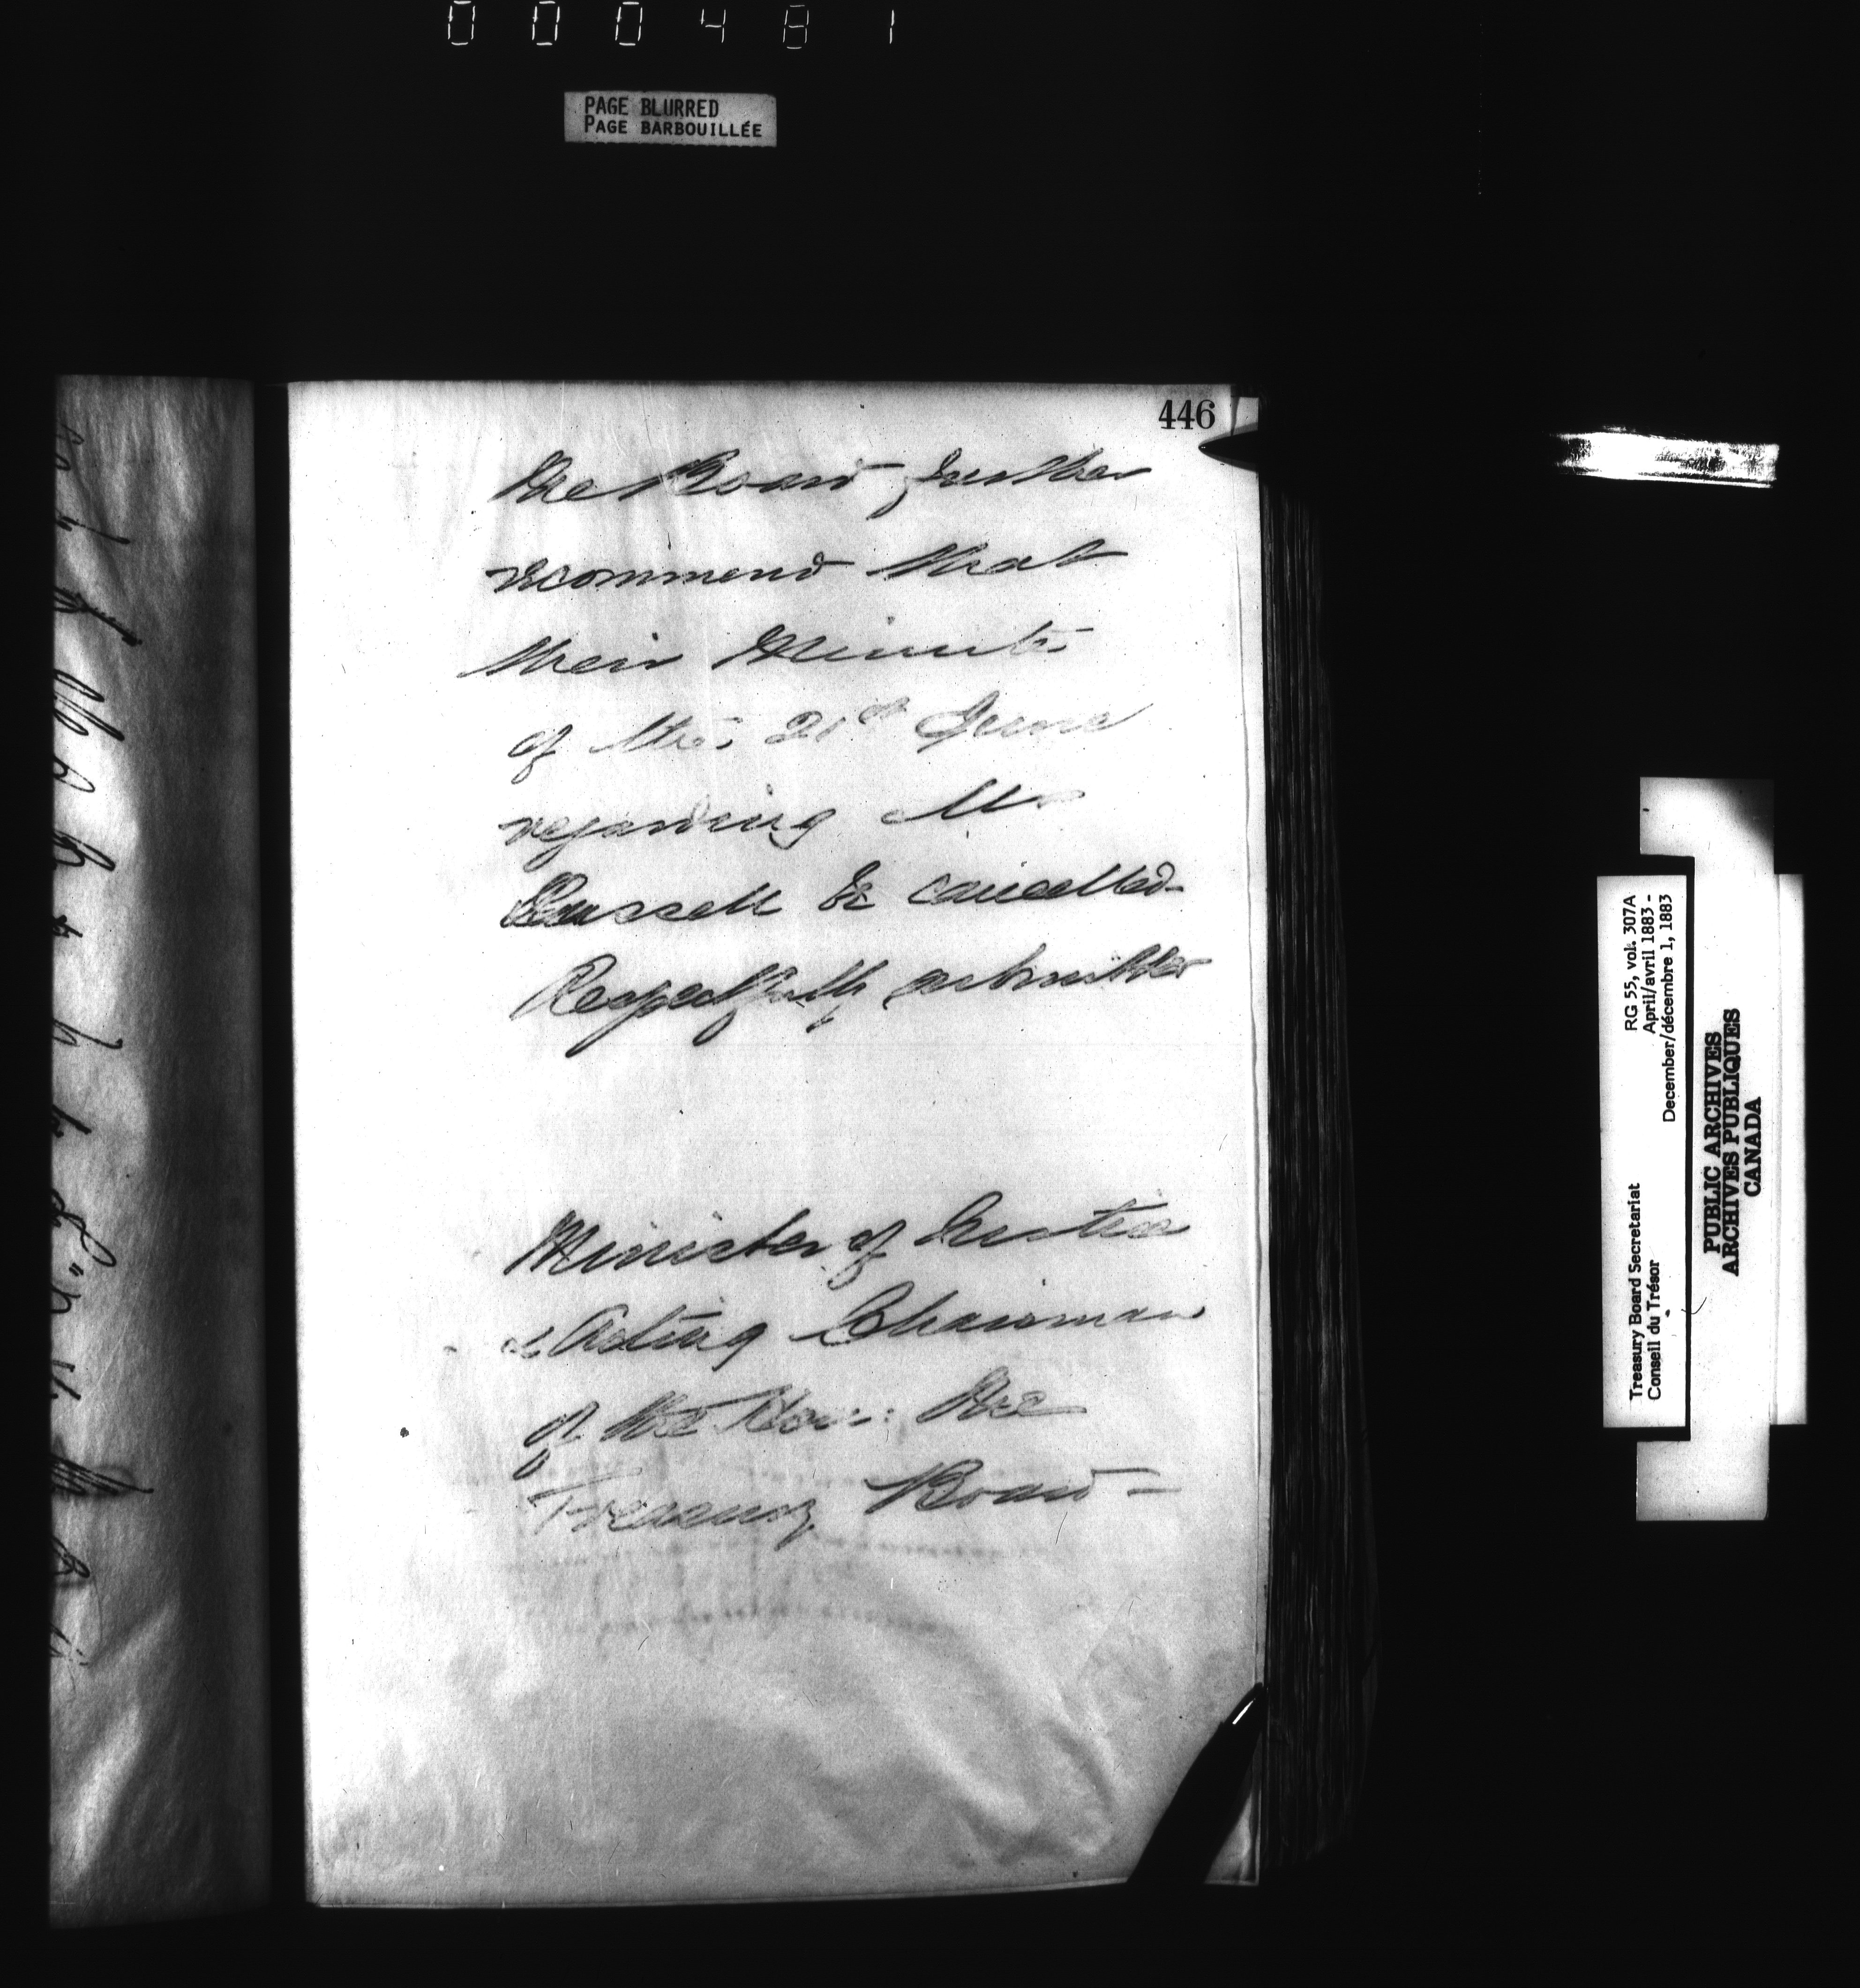 000481
PAGE BLURRED
PAGE BARBOUILLÉE
446
The Board further
recommend that
their Minute
of the 21st June
regarding Mr
Russell be cancelled-
Respectfully submitted
Minister of Justice
& Acting Chairman
of the Hon: the
Treasury Board-
Treasury Board Secretariat
Conseil du Trésor
RG 55, vol. 307A
April/avril 1883 -
December/décembre 1, 1883
PUBLIC ARCHIVES
ARCHIVES PUBLIQUES
CANADA